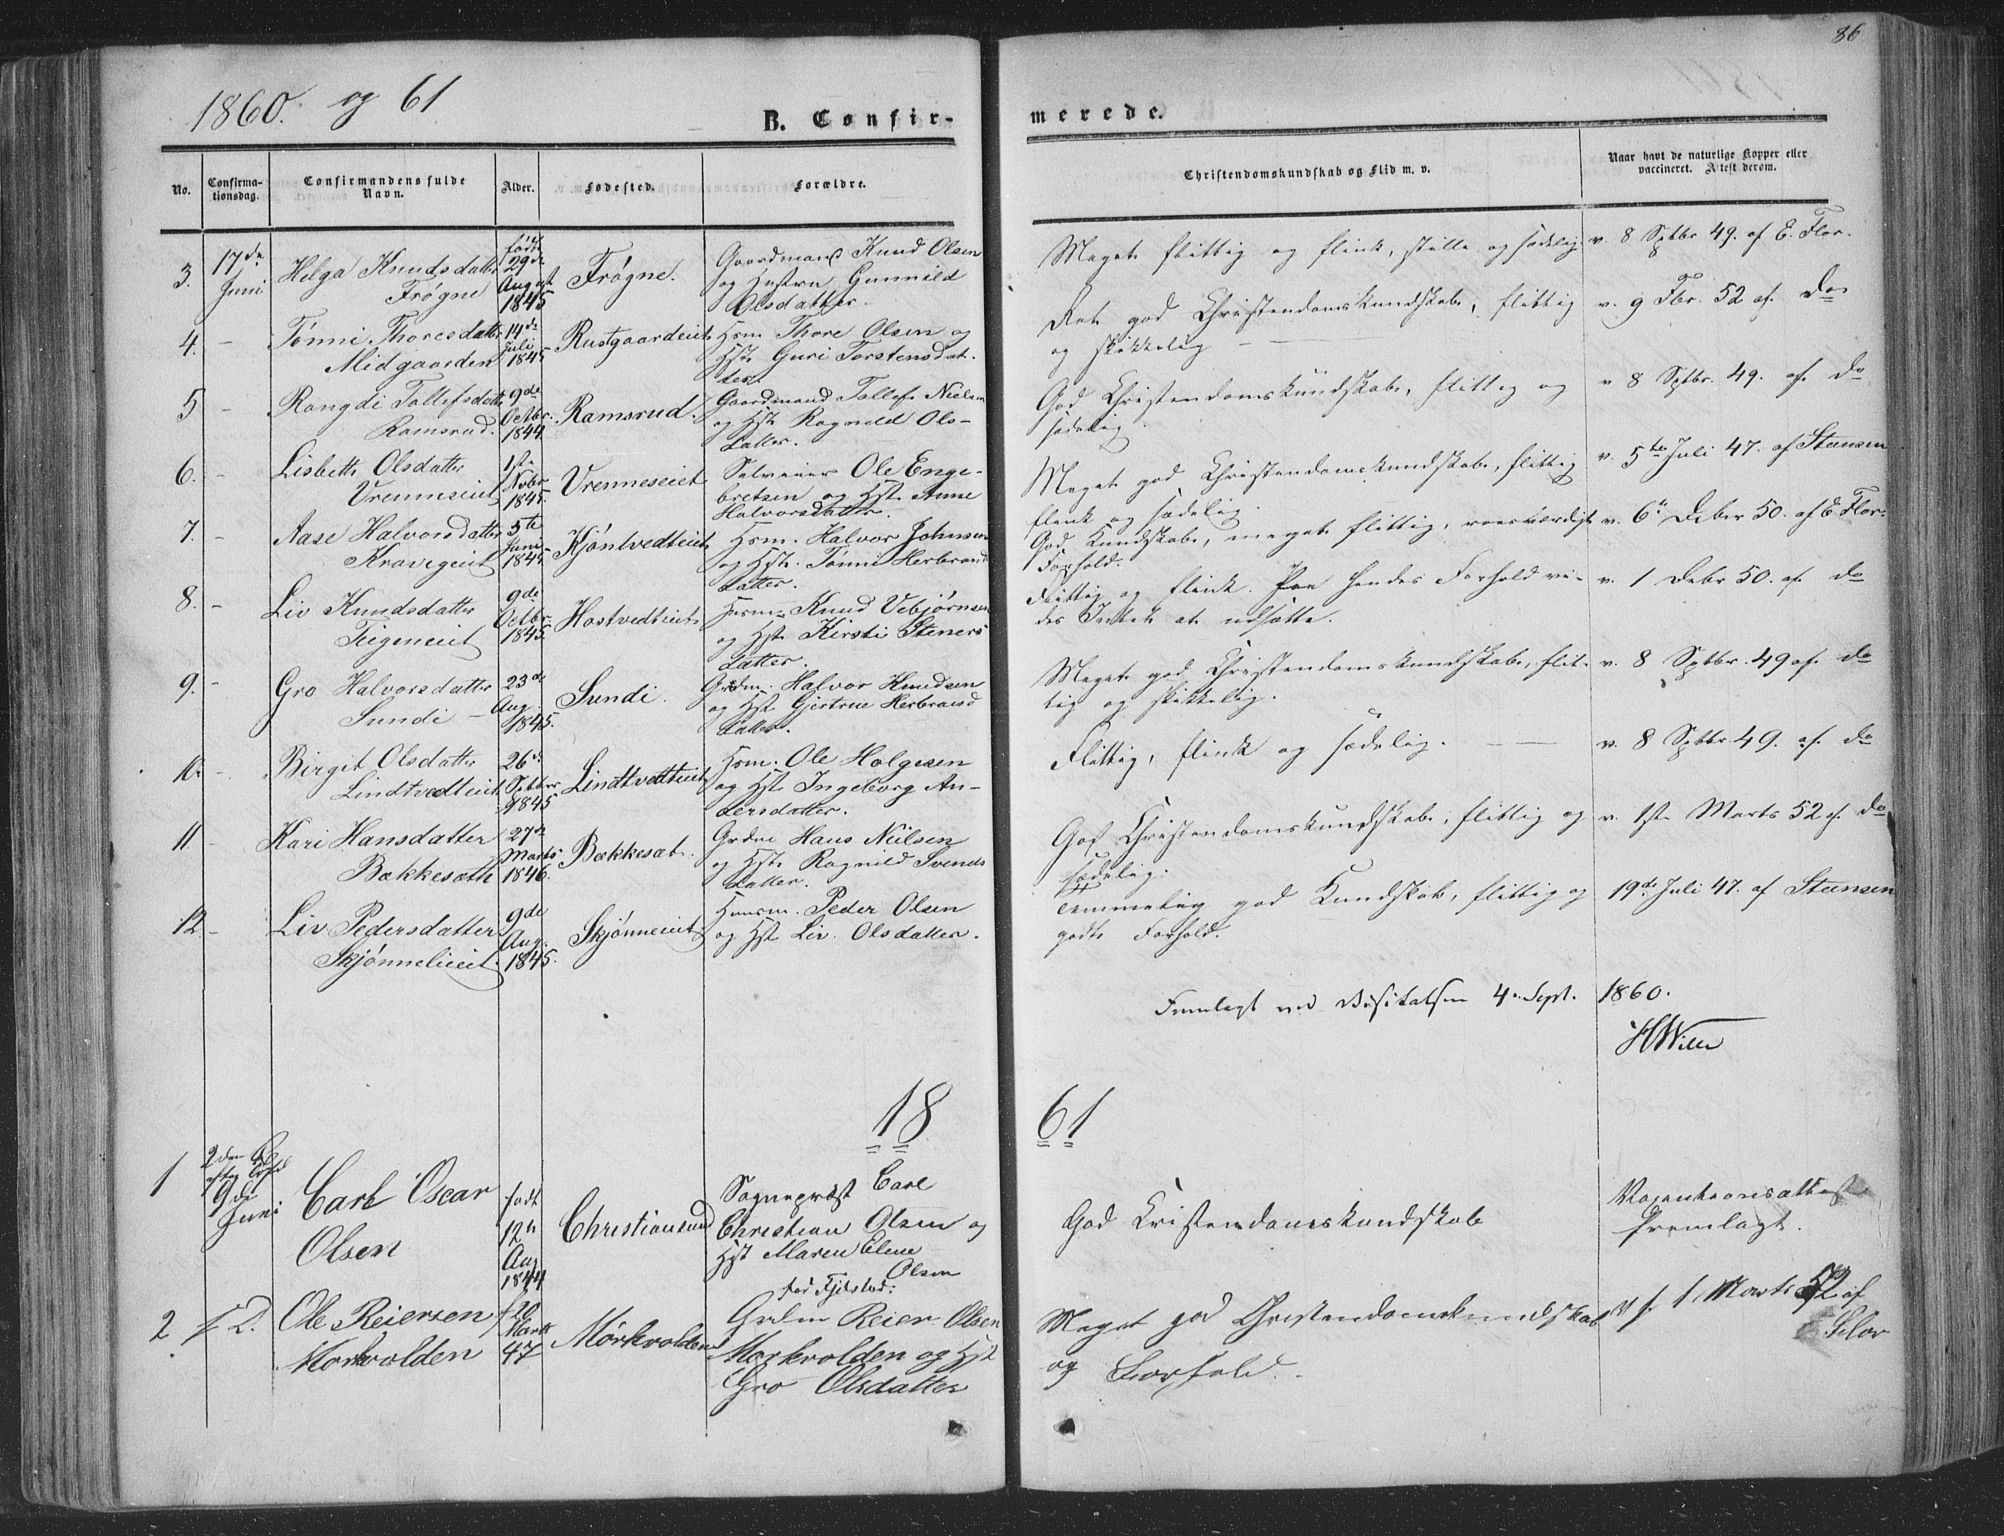 86
1860. og 61
B. Confir-
merede.
No.
Confirma-
tionsdag.
Confirmandens fulde
Navn.
Alder.
Fødested.
Forældre.
Christendomskundskab og Flid m. v.
Naar havt de naturlige Kopper eller
vaccineret. Attest derom.
3. 17de Juni
Helga Knudsdatter
Frøgne
født 29de
August
1845
Frøgne.
Gaardmand Knud Olsen
og Hustru Gunnild
Olsdatter.
Meget flittig og flink, stille og sædelig
v. 8 Sptbr 49. af E. Flor.
4. -
Tønni Thoresdatter
Midgaarden
14de
Juli
1845
Rustgaardeiet
Hsm. Thore Olsen og
Hst. Guri Torstensdat-
ter.
Ret god Christendomskundskab, flittig
og skikkelig
v. 9 Fbr. 52 af do
5 -
Rangdi Tollefsdatter
Ramsrud.
9de
Octbr.
1844
Ramsrud.
Gaardmand Tollef Nielsen
og Hst. Ragnild Ols-
datter.
God Christendomskundskab, flittig og
sædelig.
v 8 Sptbr. 49. af do
6. -
Lisbeth Olsdatter
Vrenneseiet
1ste
Nvbr
1845.
Vrenneseiet
Selveier Ole Enge-
bretsen og Hst. Anne
Halvorsdatter.
Meget god Christendomskundskab, flittig
flink og sædelig.
v. 5te Juli 47. af Steensen
7. -
Aase Halvorsdatter
Kravigeiet
5te
Juni
1845
Kjøntvedteiet
Hsm. Halvor Johnsen
og Hst. Tønni Herbrands
datter.
God Kundskab, meget flittig, roesværdigt
Forhold.
v. 6te Debr 50. af E Flor.
8. -
Liv Knudsdatter
Teigeneiet
9de
Octbr.
1845.
Hostvedteiet
Husm. Knud Vebjørnsen
og Hst. Kirsti Steners
datter.
Flittig og flink. Paa hendes Forhold vi-
des Intet at udsætte.
v. 1 Debr 50. af do
9. -
Gro Halvorsdatter
Sundi
23de
Aug.
1845.
Sundi.
Grdm. Halvor Knudsen
og Hst. Gjertrue Herbrands
datter.
Meget god Christendomskundskab, flit-
tig og skikkelig.
v. 8 Sptbr. 49 af do
10. -
Birgit Olsdatter
Lindtvedteiet
26de
Octbr
1845
Lindtvedteiet
Hsm. Ole Holgesen
og Hst. Ingeborg An-
dersdatter.
Flittig, flink og sædelig.
v. 8 Sptbr 49. af do
11 -
Kari Hansdatter
Bækkesæth
27de
Marts
1846.
Bækkesæt.
Grdm Hans Nielsen
og Hst. Ragnild Svends
datter.
God Christendomskundskab, flittig og
sædelig.
v. 1ste Marts 52 af do
12 -
Liv Pedersdatter
Skjønnelieiet.
9de
Aug.
1845.
Skjønneeiet
Huusm. Peder Olsen
og Hst Liv Olsdatter.
Temmelig god Kundskab, flittig og
godt Forhold.
19de Juli 47. af Steensen
Fremlagt ved Visitatsen 4. Sept. 1860.
18 61
1
9de
Juni
Carl Oscar
Olsen
født
12te
Aug
1844
Christiansund
Sognepræst Carl
Christian Olsen og
Hst Maren Elene
Olsen
fød Fjelstad.
God Kristendomskundskab
Vaccinationsattest
fremlagt.
2
Ole Reiersen
Morkvolden
f 20
Marts
47
Mørkvolden
Grdm Reier Olsen
Morkvolden og Hst
Gro Olsdatter
Meget god Christendomskundskab
og Forhold.
1 Marts 52 af
Flor